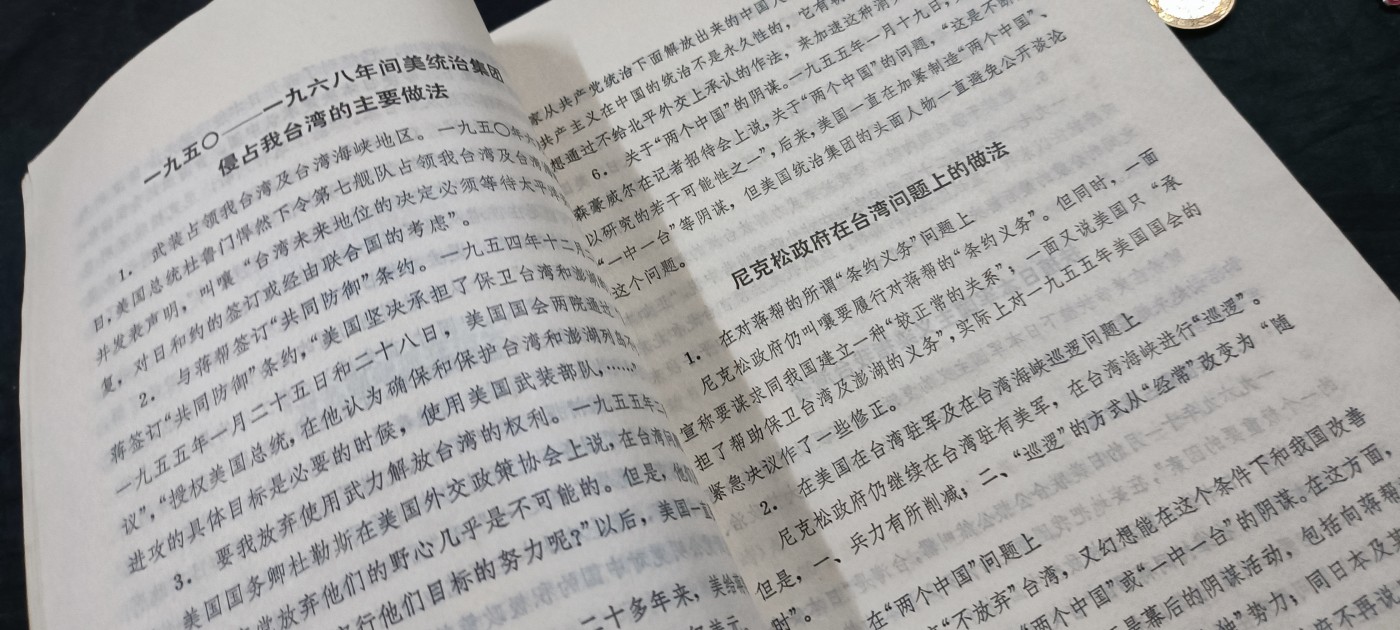 一九五〇——一九六八年间美统治集团
侵占我台湾的主要做法
1. 武装占领我台湾及台湾海峡地区。一九五〇年六
日，美国总统杜鲁门悍然下令第七舰队占领我台湾及台湾
并发表声明，叫嚷“台湾未来地位的决定必须等待太平洋
复，对日和约的签订或经由联合国的考虑”。
2. 与蒋帮签订“共同防御”条约。一九五四年十二月
蒋签订“共同防御”条约，“美国坚决承担了保卫台湾和澎湖
一九五五年一月二十五日和二十八日，美国国会两院通过
议”，“授权美国总统，在他认为确保和保护台湾和澎湖列岛不
进攻的具体目标是必要的时候，使用美国武装部队，……”
3. 要我放弃使用武力解放台湾的权利。一九五五年二
美国国务卿杜勒斯在美国外交政策协会上说，在台湾问
党放弃他们的野心几乎是不可能的。但是，他们
行他们目标的努力呢？”以后，美国一直
二十多年来，美
家从共产党统治下面解放出来的中国人
共产主义在中国的统治不是永久性的，它有
想通过不给北平外交上承认的作法，来加速这种消
6. 关于“两个中国”的阴谋。一九五五年一月十九日，
森豪威尔在记者招待会上说，关于“两个中国”的问题，“这是不断
以研究的若干可能性之一”，后来，美国一直在加紧制造“两个中国”、
“一中一台”等阴谋，但美国统治集团的头面人物一直避免公开谈论
这个问题。
尼克松政府在台湾问题上的做法
1. 在对蒋帮的所谓“条约义务”问题上
尼克松政府仍叫嚷要履行对蒋帮的“条约义务”。但同时，一面
宣称要谋求同我国建立一种“较正常的关系”；一面又说美国只“承
担了帮助保卫台湾及澎湖的义务”，实际上对一九五五年美国国会的
紧急决议作了一些修正。
2. 在美国在台湾驻军及在台湾海峡巡逻问题上
尼克松政府仍继续在台湾驻有美军，在台湾海峡进行“巡逻”。
但是，一、兵力有所削减；二、“巡逻”的方式从“经常”改变为“随
时”。
在“两个中国”问题上
“不放弃”台湾，又幻想能在这个条件下和我国改善
“两个中国”或“一中一台”的阴谋。在这方面，
是幕后的阴谋活动，包括向蒋帮
独”势力；同日本及